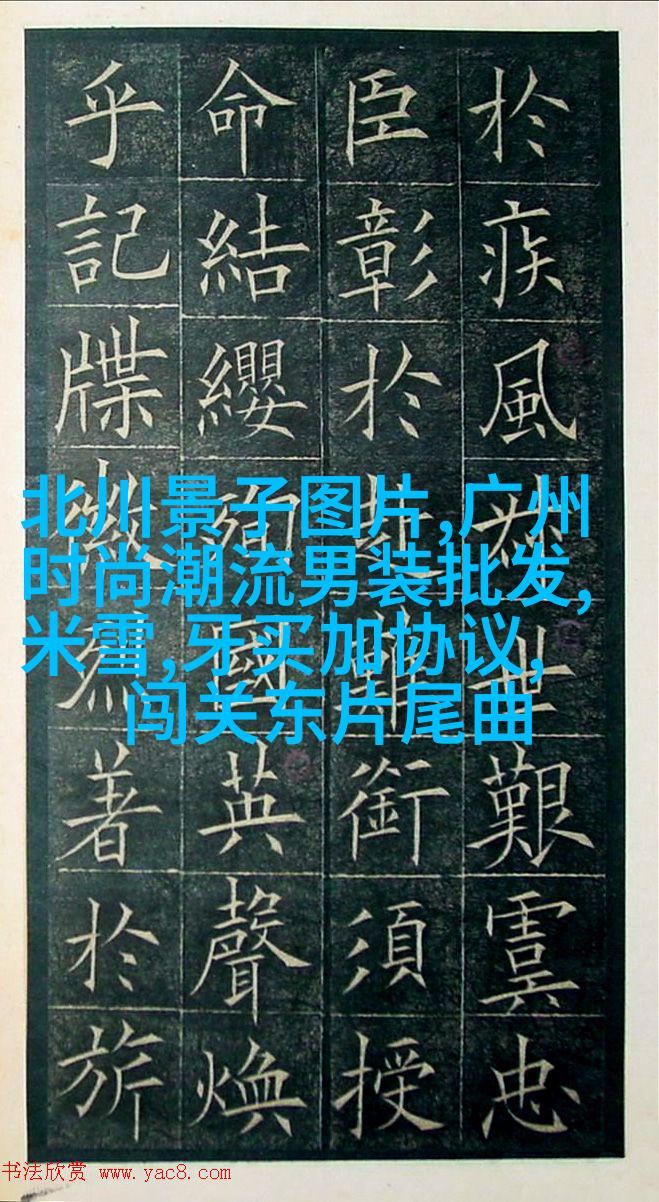 於疾風叔世艱虞忠
臣彰於赴難銜須授
命結纓殉國英聲煥
乎記牒徽烈著於旂
北川景子图片,广州
时尚潮流男装批发,
米雪,牙买加协议,
闯关东片尾曲
书法欣赏 www.yac8.com